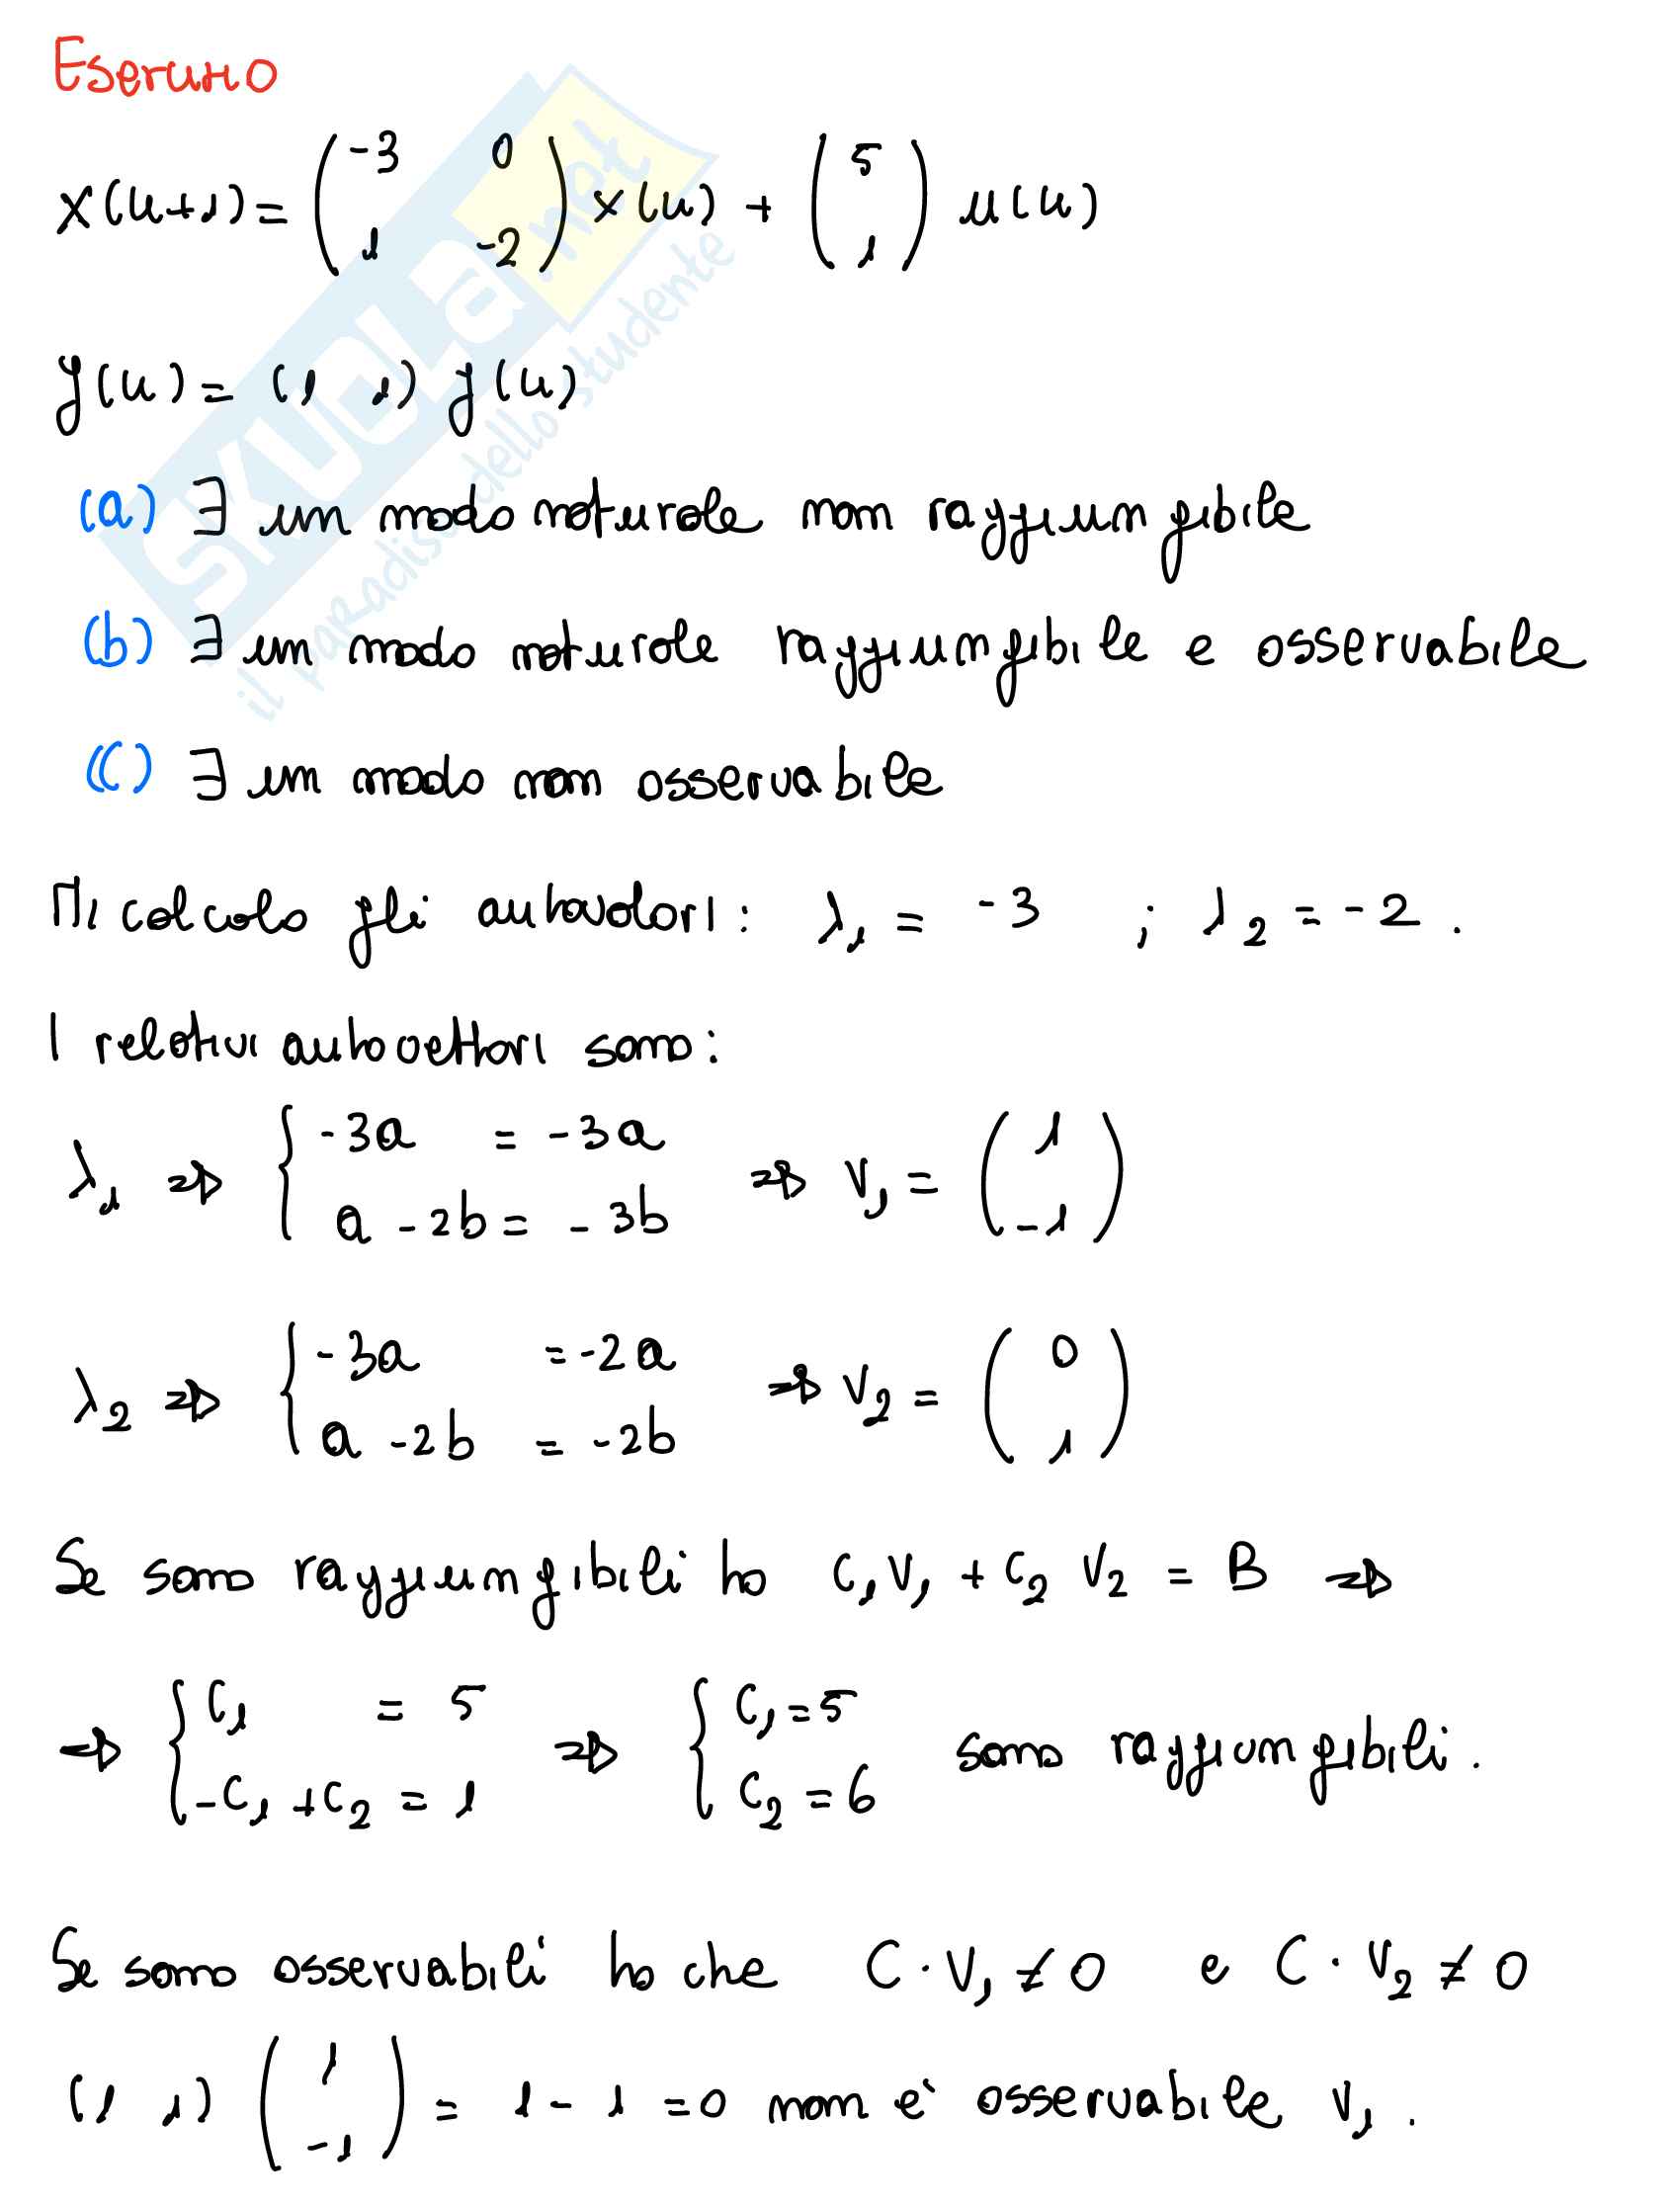 Esercizio
x(k+1) = (-3 0; 1 -2) x(k) + (5; 1) u(k)
y(k) = (1 1) y(k)
(a) ∃ un modo naturale non raggiungibile
(b) ∃ un modo naturale raggiungibile e osservabile
(c) ∃ un modo non osservabile
Mi calcolo gli autovalori: λ1 = -3 ; λ2 = -2 .
I relativi autovettori sono:
λ1 ⇒ { -3a = -3a
a - 2b = - 3b ⇒ v1 = (1; -1)
λ2 ⇒ { -3a = -2a
a - 2b = -2b ⇒ v2 = (0; 1)
Se sono raggiungibili ho c1 v1 + c2 v2 = B ⇒
⇒ { c1 = 5
-c1 + c2 = 1 ⇒ { c1 = 5
c2 = 6 sono raggiungibili .
Se sono osservabili ho che C · v1 ≠ 0 e C · v2 ≠ 0
(1 1) (1; -1) = 1 - 1 = 0 non è osservabile v1 .
SKUOLA.net
il paradiso dello studente